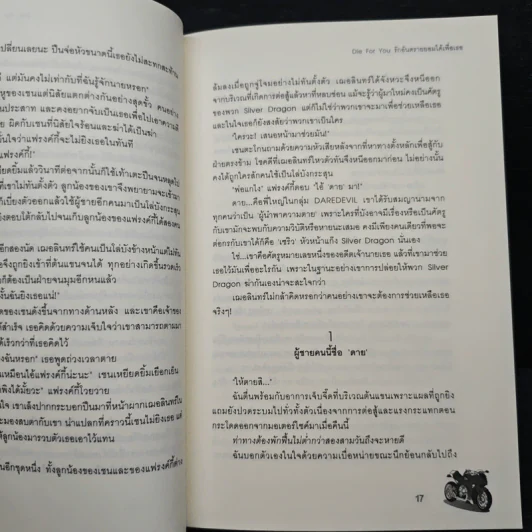 เปลี่ยนเลยนะ ปืนจ่อหัวขนาดนี้เธอยังไม่สะทกสะท้าน
ดี แต่มันคงไม่เท่ากับที่ฉันรู้จักนายหรอก"
ของเซนแต่นิสัยแตกต่างกันอย่างสุดขั้ว
และคงอยากจับเป็นเธอเพื่อไปเอาความดี
ผิดกับเซนที่มีนิสัยใจร้อนและฆ่าได้เป็นฆ่า
แฟรงค์กี้จะไม่ยิงเธอในทันที
แฟรงค์กี้!"
ที่เขาไม่ทันตั้งตัว ลูกน้องของเขาจึงพยายามจะเข้ามา
เบี่ยงตัวออกแล้วใช้ผู้ชายอีกคนมาเป็นโล่บังกระสุน
อีกสองนัด เฌอลินทร์ใช้คนเป็นโล่บังข้างหน้าแต่ไม่ทัน
จึงถูกยิงเข้าที่ต้นแขนจนได้ ทุกอย่างเกิดขึ้นรวดเร็ว
ก็ต้องเป็นฝ่ายจนมุมอีกหนแล้ว
งั้นฉันยิงเธอแน่!"
ของเซนดังขึ้นจากทางด้านหลัง และเขาคือเจ้าของ
เร็วกว่าที่คิดไว้
ฉันหรอก" เธอพูดถ่วงเวลาตาย
เหมือนไอ้แฟรงค์กี้น่ะนะ" เซนเหยียดยิ้มเยือกเย็น
แฟรงค์กี้โวยวาย
ลูกน้องมารวบตัวเธอเอาไว้แทน
คนอีกชุดหนึ่ง ทั้งลูกน้องของเซนและของแฟรงค์กี้ต่าง
Die For You รักอันตรายยอมได้เพื่อเธอ
ล้มลงเมื่อถูกจู่โจมอย่างไม่ทันตั้งตัว เฌอลินทร์ได้จังหวะจึงหนีออก
จากบริเวณที่เกิดการต่อสู้แล้วหาที่หลบซ่อน แม้จะรู้ว่าผู้มาใหม่คงเป็นศัตรู
ของพวก Silver Dragon แต่ก็ไม่ใช่ว่าพวกเขาจะมาเพื่อช่วยเหลือเธอ
และในใจเธอก็ยังสงสัยว่าพวกเขาเป็นใคร
"ใครวะ! เสนอหน้ามาช่วยมัน!"
เซนตะโกนถามด้วยความหัวเสียหลังจากที่หาทางตั้งหลักเพื่อสู้กับ
ฝ่ายตรงข้าม โชคดีที่เฌอลินทร์ไหวตัวทันจึงหนีออกมาก่อน ไม่อย่างนั้น
คงได้ถูกใครลักคนใช้เป็นโล่บังกระสุน
"พ่อแกไง! แฟรงค์กี้ตอบ "ไอ้ 'ดาย' มา!"
ดาย...คือพี่ใหญ่ในกลุ่ม DAREDEVIL เขาได้รับสมญานามจาก
ทุกคนว่าเป็น 'ผู้นำพาความตาย' เพราะใครที่บังอาจมีเรื่องหรือเป็นศัตรู
กับเขามักจะพบกับความวิบัติหรือหายนะเสมอ คงมีเพียงคนเดียวที่พอจะ
ต่อกรกับเขาได้ก็คือ 'เชริว' หัวหน้าแก๊ง Silver Dragon นั่นเอง
ใช่...เขาคือศัตรูหมายเลขหนึ่งของอดีตเจ้านายเธอ แล้วที่เขามาช่วย
เธอไว้มันเพื่ออะไรกัน เพราะในฐานะอย่างเขาการปล่อยให้พวก Silver
Dragon ฆ่ากันเองน่าจะสะใจกว่า
เฌอลินทร์ไม่กล้าคิดหรอกว่าคนอย่างเขาจะต้องการช่วยเหลือเธอ
จริงๆ!
1
ผู้ชายคนนี้ชื่อ 'ดาย'
"ให้ตายสิ..."
ฉันตื่นพร้อมกับอาการเจ็บจี๊ดที่บริเวณต้นแขนเพราะแผลที่ถูกยิง
แถมยังปวดระบมไปทั่วทั้งตัวเนื่องจากการต่อสู้และแรงกระแทกตอน
กระโดดออกจากมอเตอร์ไซค์มาเมื่อคืนนี้
ท่าทางต้องพักฟื้นไม่ต่ำกว่าสองสามวันถึงจะหายดี
ฉันบอกตัวเองในใจด้วยความเบื่อหน่ายขณะนึกย้อนกลับไปถึง
17